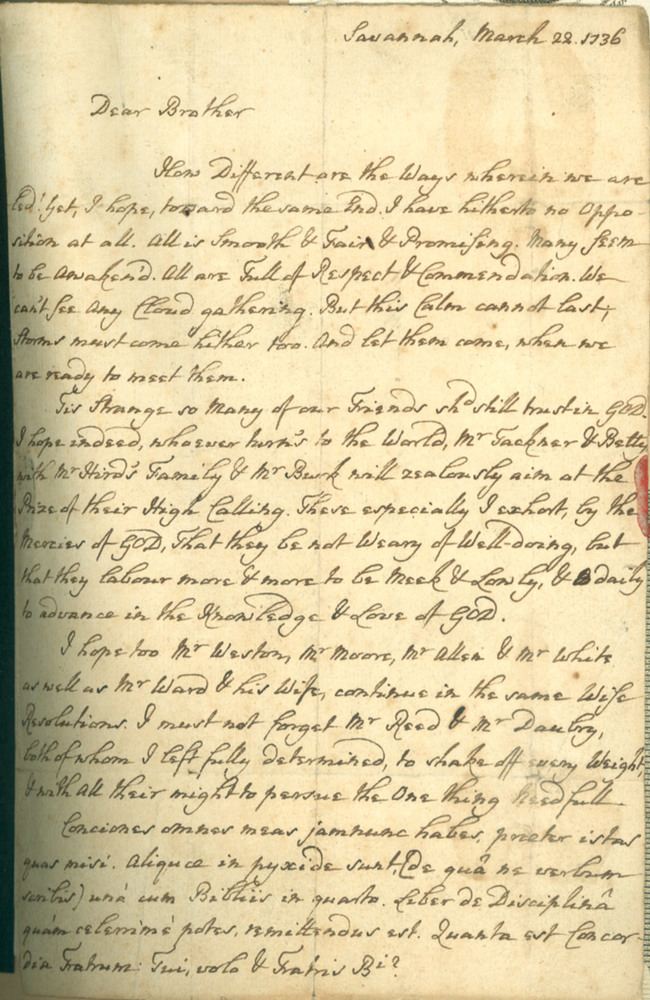 Savannah, March 22. 1736
Dear Brother
How Different are the Ways wherein we are
led! Yet, I hope, toward the same End. I have hitherto no Oppo-
sition at all. All is Smooth & Fair & Promising. Many seem
to be Awaken'd. All are Full of Respect & Commendation. We
can't see Any Cloud gathering. But this Calm cannot last;
Storms must come hither too. And let them come, when we
are ready to meet them.
Tis Strange so Many of our Friends shd still trust in GOD.
I hope indeed, whoever turns to the World, Mr Tackner & Betty
with Mr Hird's Family & Mr Burk will zealously aim at the
Prize of their High Calling. These especially I exhort, by the
Mercies of GOD, That they be not Weary of Well-doing, but
that they labour more & more to be Meek & Lowly, & daily
to advance in the Knowledge & Love of GOD.
I hope too Mr Weston, Mr Moore, Mr Allen & Mr White
as well as Mr Ward & his Wife, continue in the same Wise
Resolutions. I must not forget Mr Reed & Mr Daubry,
both of whom I left fully determined, to shake off every Weight,
& with All their might to persue the One thing Needfull
Conciones omnes meas jamnunc habes, praeter istas
quas misi. Aliquae in pyxide sunt, (de quâ ne verbum
scribis) unà cum Bibliis in quarto. Liber de Disciplinâ
quàm celerrimè potes, remittendus est. Quanta est Concor-
dia Fratrum: Tui, volo & Fratris Bi?